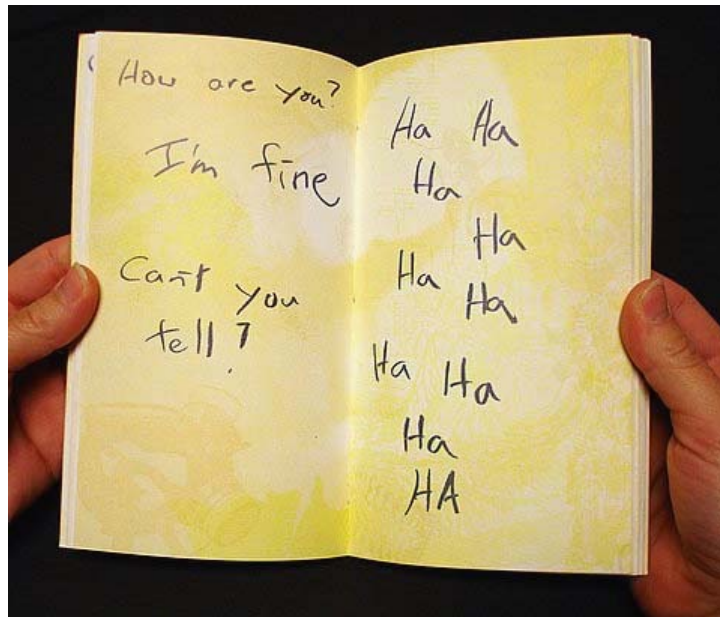 How are you?
I'm fine
Can't you
tell?
Ha Ha
Ha
Ha
Ha
Ha
Ha Ha
Ha
HA